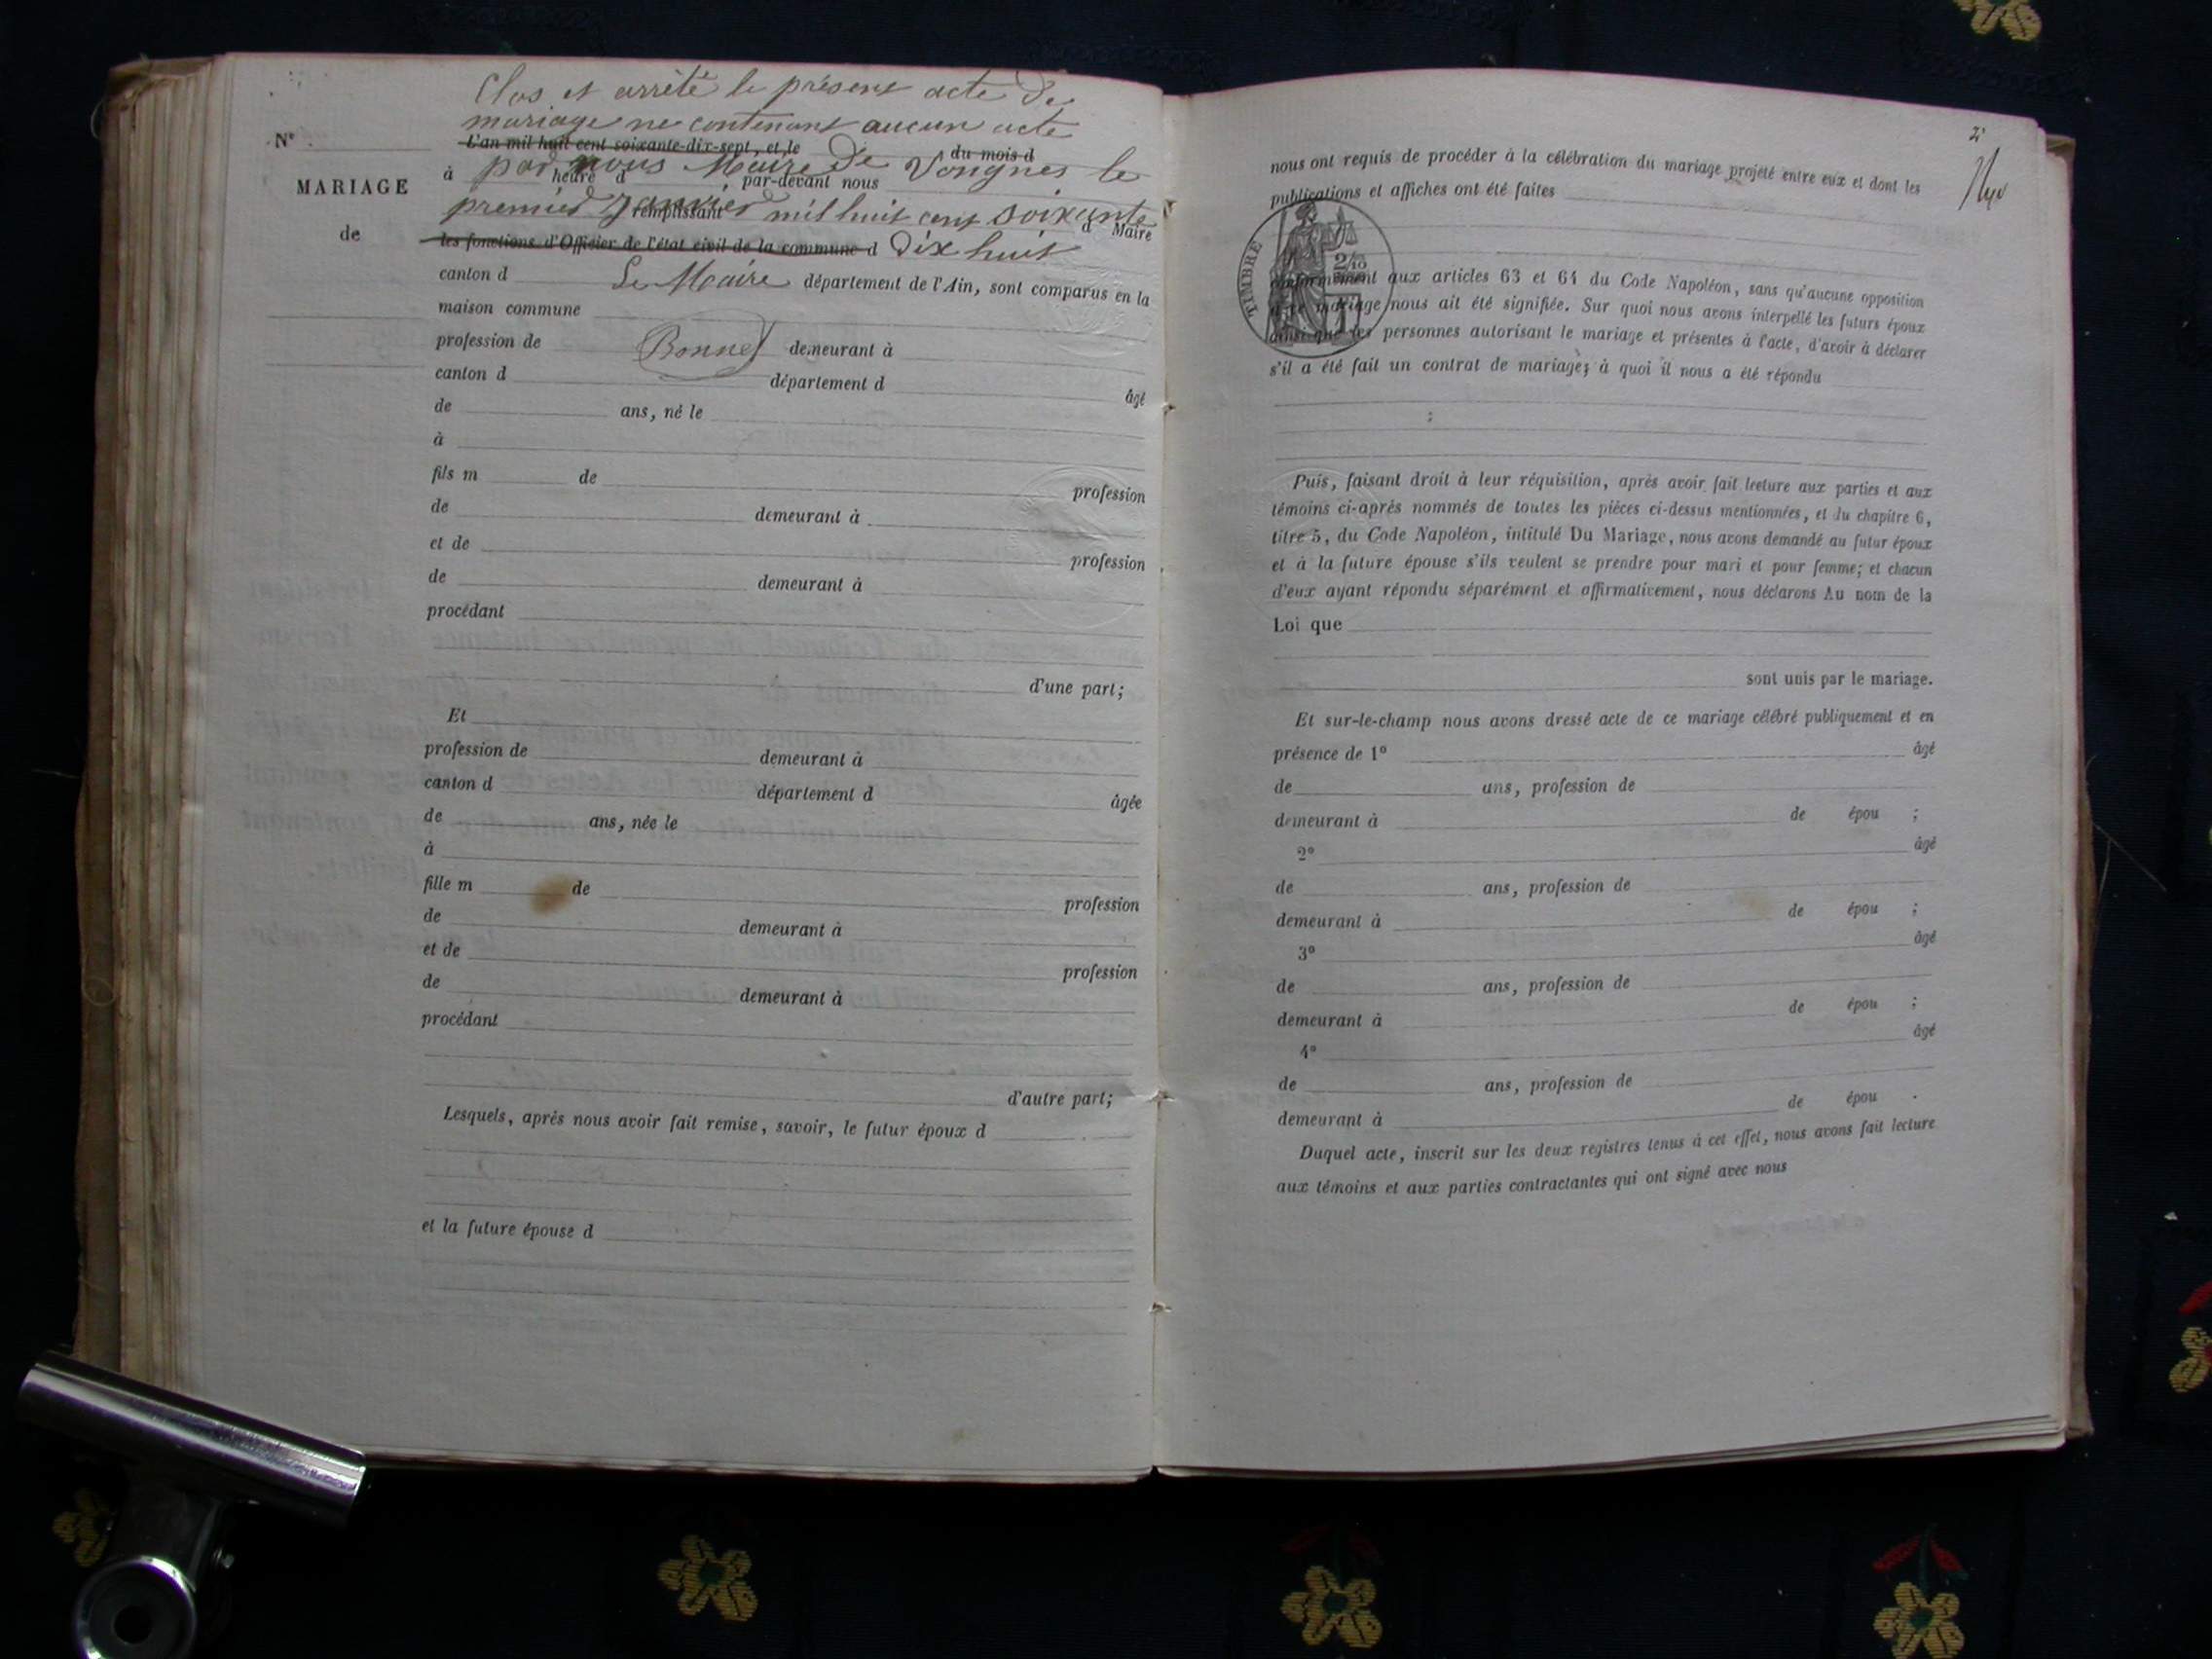 Clos et arrêté le présent acte de
mariage ne contenant aucun acte
N°
L'an mil huit cent soixante-dix-sept, et le du mois d
par nous Maire de Vongnes le
MARIAGE
à heure d , par-devant nous
premier Janvier mil huit cent soixante
remplissant d Maire
de
les fonctions d'Officier de l'état civil de la commune d Dix huit
canton d Le Maire département de l'Ain, sont comparus en la
maison commune
profession de Bonnet demeurant à
canton d département d âgé
de ans, né le
à
fils m de profession
de demeurant à
et de profession
de demeurant à
procédant
d'une part;
Et
profession de demeurant à
canton d département d âgée
de ans, née le
à
fille m de profession
de demeurant à
et de profession
de demeurant à
procédant
d'autre part;
Lesquels, après nous avoir fait remise, savoir, le futur époux d
et la future épouse d
nous ont requis de procéder à la célébration du mariage projeté entre eux et dont les
publications et affiches ont été faites
TIMBRE
2/10
conformément aux articles 63 et 64 du Code Napoléon, sans qu'aucune opposition
à ce mariage nous ait été signifiée. Sur quoi nous avons interpellé les futurs époux
ainsi que les personnes autorisant le mariage et présentes à l'acte, d'avoir à déclarer
s'il a été fait un contrat de mariage; à quoi il nous a été répondu
;
Puis, faisant droit à leur réquisition, après avoir fait lecture aux parties et aux
témoins ci-après nommés de toutes les pièces ci-dessus mentionnées, et du chapitre 6,
titre 5, du Code Napoléon, intitulé Du Mariage, nous avons demandé au futur époux
et à la future épouse s'ils veulent se prendre pour mari et pour femme; et chacun
d'eux ayant répondu séparément et affirmativement, nous déclarons Au nom de la
Loi que
sont unis par le mariage.
Et sur-le-champ nous avons dressé acte de ce mariage célébré publiquement et en
présence de 1° âgé
de ans, profession de
demeurant à de épou ;
2° âgé
de ans, profession de
demeurant à de épou ;
3° âgé
de ans, profession de
demeurant à de épou ;
4° âgé
de ans, profession de
demeurant à de épou .
Duquel acte, inscrit sur les deux registres tenus à cet effet, nous avons fait lecture
aux témoins et aux parties contractantes qui ont signé avec nous